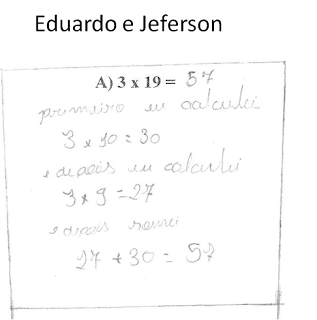 Eduardo e Jeferson
A) 3 x 19 = 57
primeiro eu calculei
3 x 10 = 30
e depois eu calculei
3 x 9 = 27
e depois somei
27 + 30 = 57